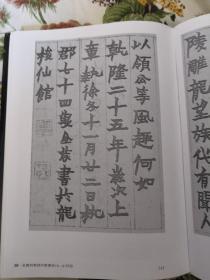 陵雕龍望族代有聞人
以領公等風趣何如
乾隆二十五年歲次上
章執徐冬十一月廿二日杭
郡七十四叟金農書於龍
梭仙館